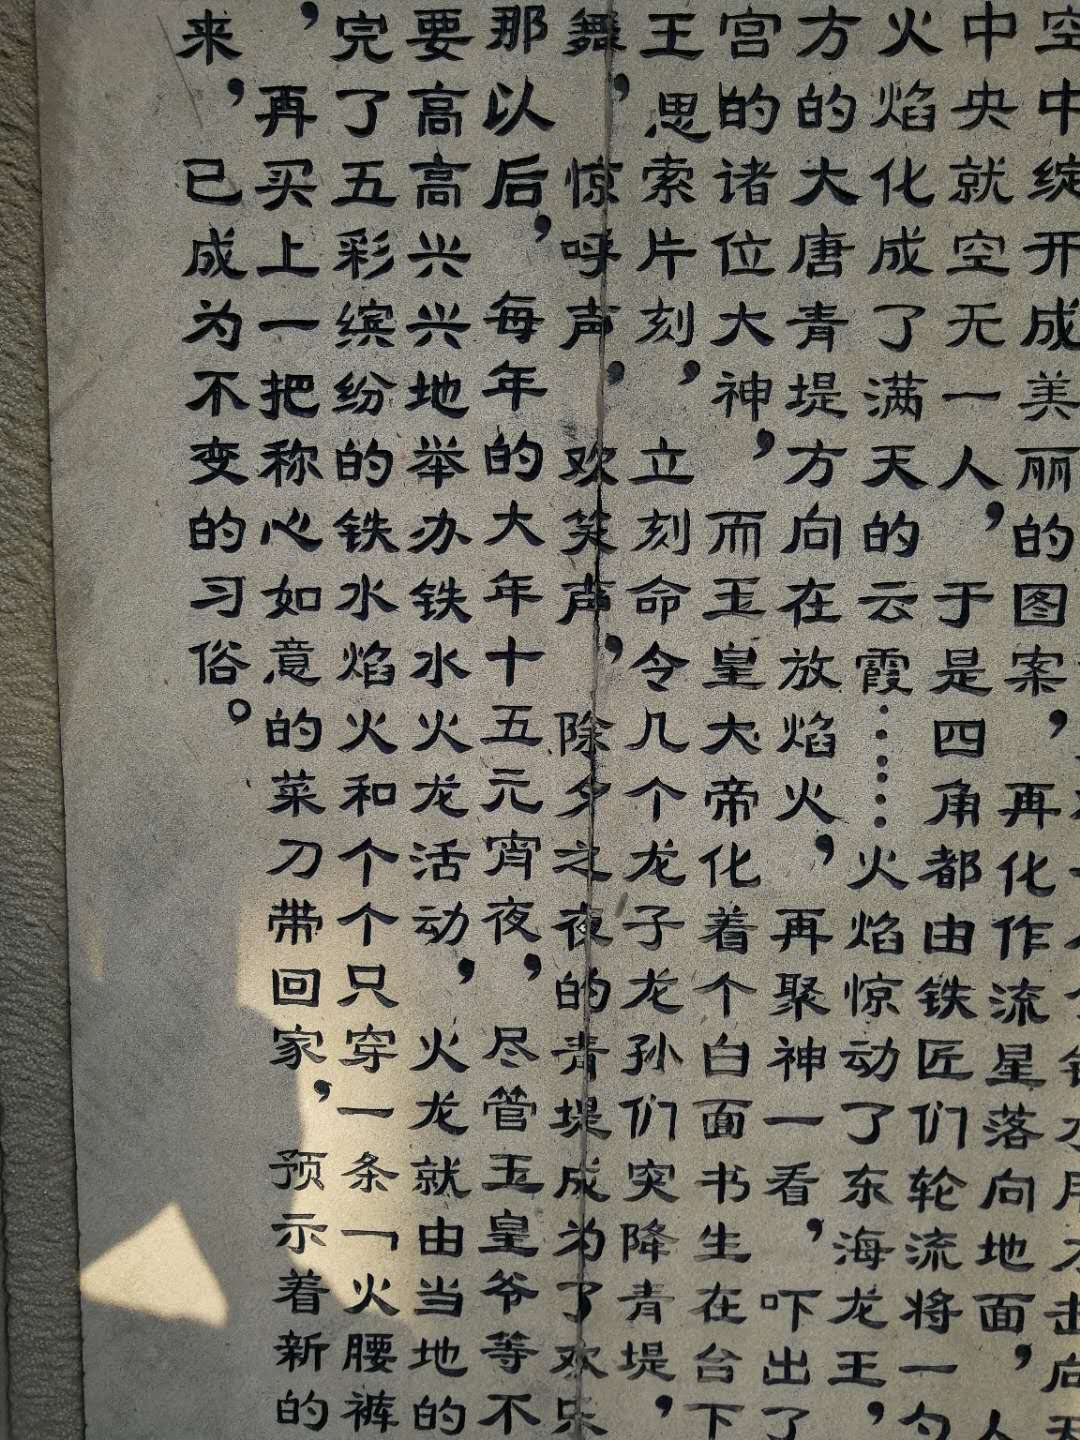 空中绽开成美丽的图案，再化作流星落向地面，人
中央就空无一人，于是四角都由铁匠们轮流将一勺
火焰化成了满天的云霞……火焰惊动了东海龙王，
方的大唐青堤方向在放焰火，再聚神一看，吓出了
宫的诸位大神，而玉皇大帝化着个白面书生在台下
王思索片刻，立刻命令几个龙子龙孙们突降青堤，
舞，惊呼声，欢笑声，除夕之夜的青堤成为了欢乐
那以后，每年的大年十五元宵夜，尽管玉皇爷等不
要高高兴兴地举办铁水火龙活动，火龙就由当地的
完了五彩缤纷的铁水焰火和个个只穿一条「火腰裤
，再买上一把称心如意的菜刀带回家，预示着新的
来，已成为不变的习俗。